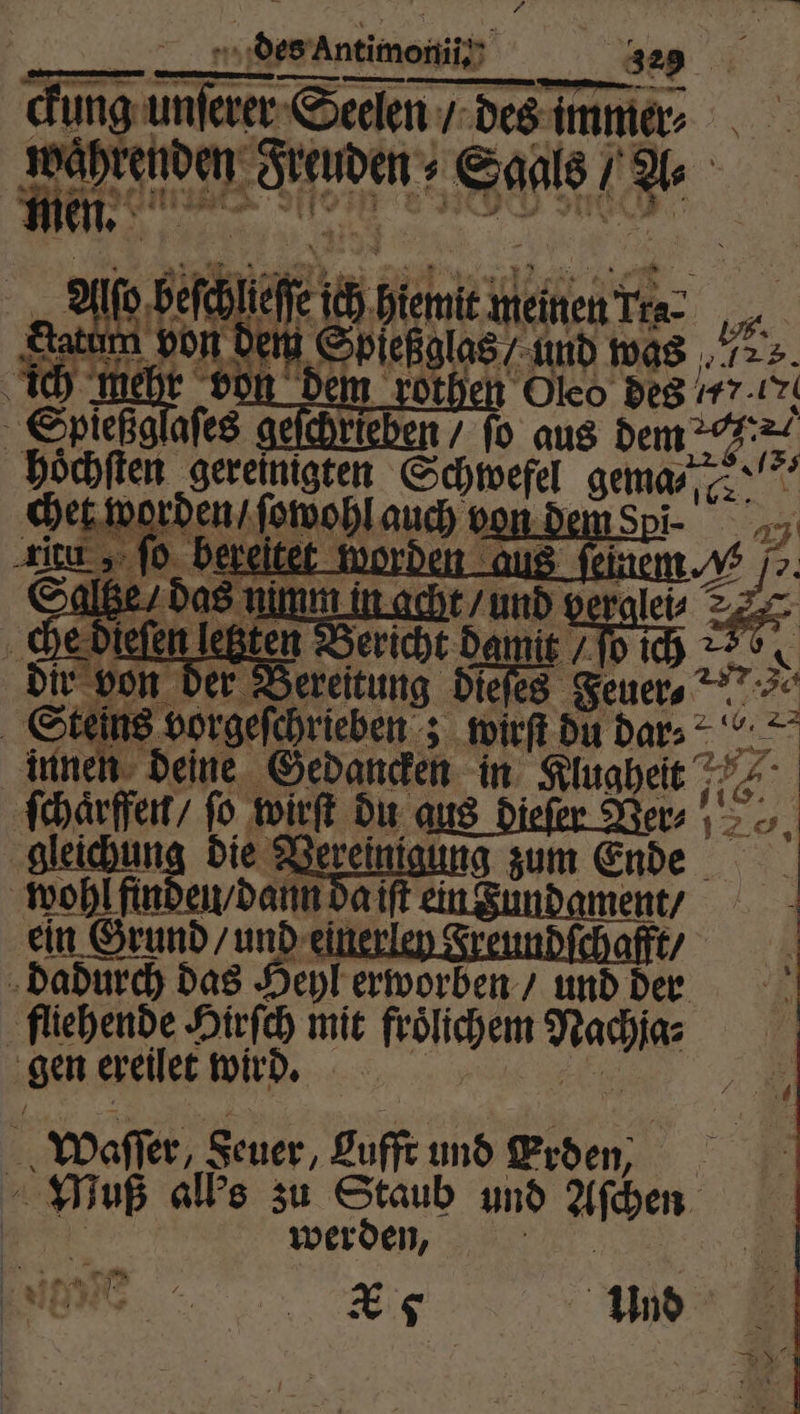 des Antimonii. 329
ckung unſerer Seelen / des immer⸗
waͤhrenden Freuden⸗Saals / A⸗
men.
Alſo beſchlieſſe ich hiemit meinen Tra-
ctatum von dem Spießglas / und was
ich mehr von dem rothen Oleo des
Spießglaſes geſchrieben / ſo aus dem
hoͤchſten gereinigten Schwefel gema⸗
chet worden / ſowohl auch von dem Spi-
ritu, ſo bereitet worden aus ſeinem
Saltze / das nimm in acht / und verglei⸗
che dieſen letzten Bericht damit / ſo ich
dir von der Bereitung dieſes Feuer⸗
Steins vorgeſchrieben ; wirſt du dar⸗
innen deine Gedancken in Klugheit
ſchaͤrffen / ſo wirſt du aus dieſer Ver⸗
gleichung die Vereinigung zum Ende
wohl finden / dann da iſt ein Fundament /
ein Grund / und einerley Freundſchafft /
dadurch das Heyl erworben / und der
fliehende Hirſch mit froͤlichem Nachja⸗
gen ereilet wird.
Waſſer, Feuer, Lufft und Erden,
Muß all's zu Staub und Aſchen
werden,
X 5 Und